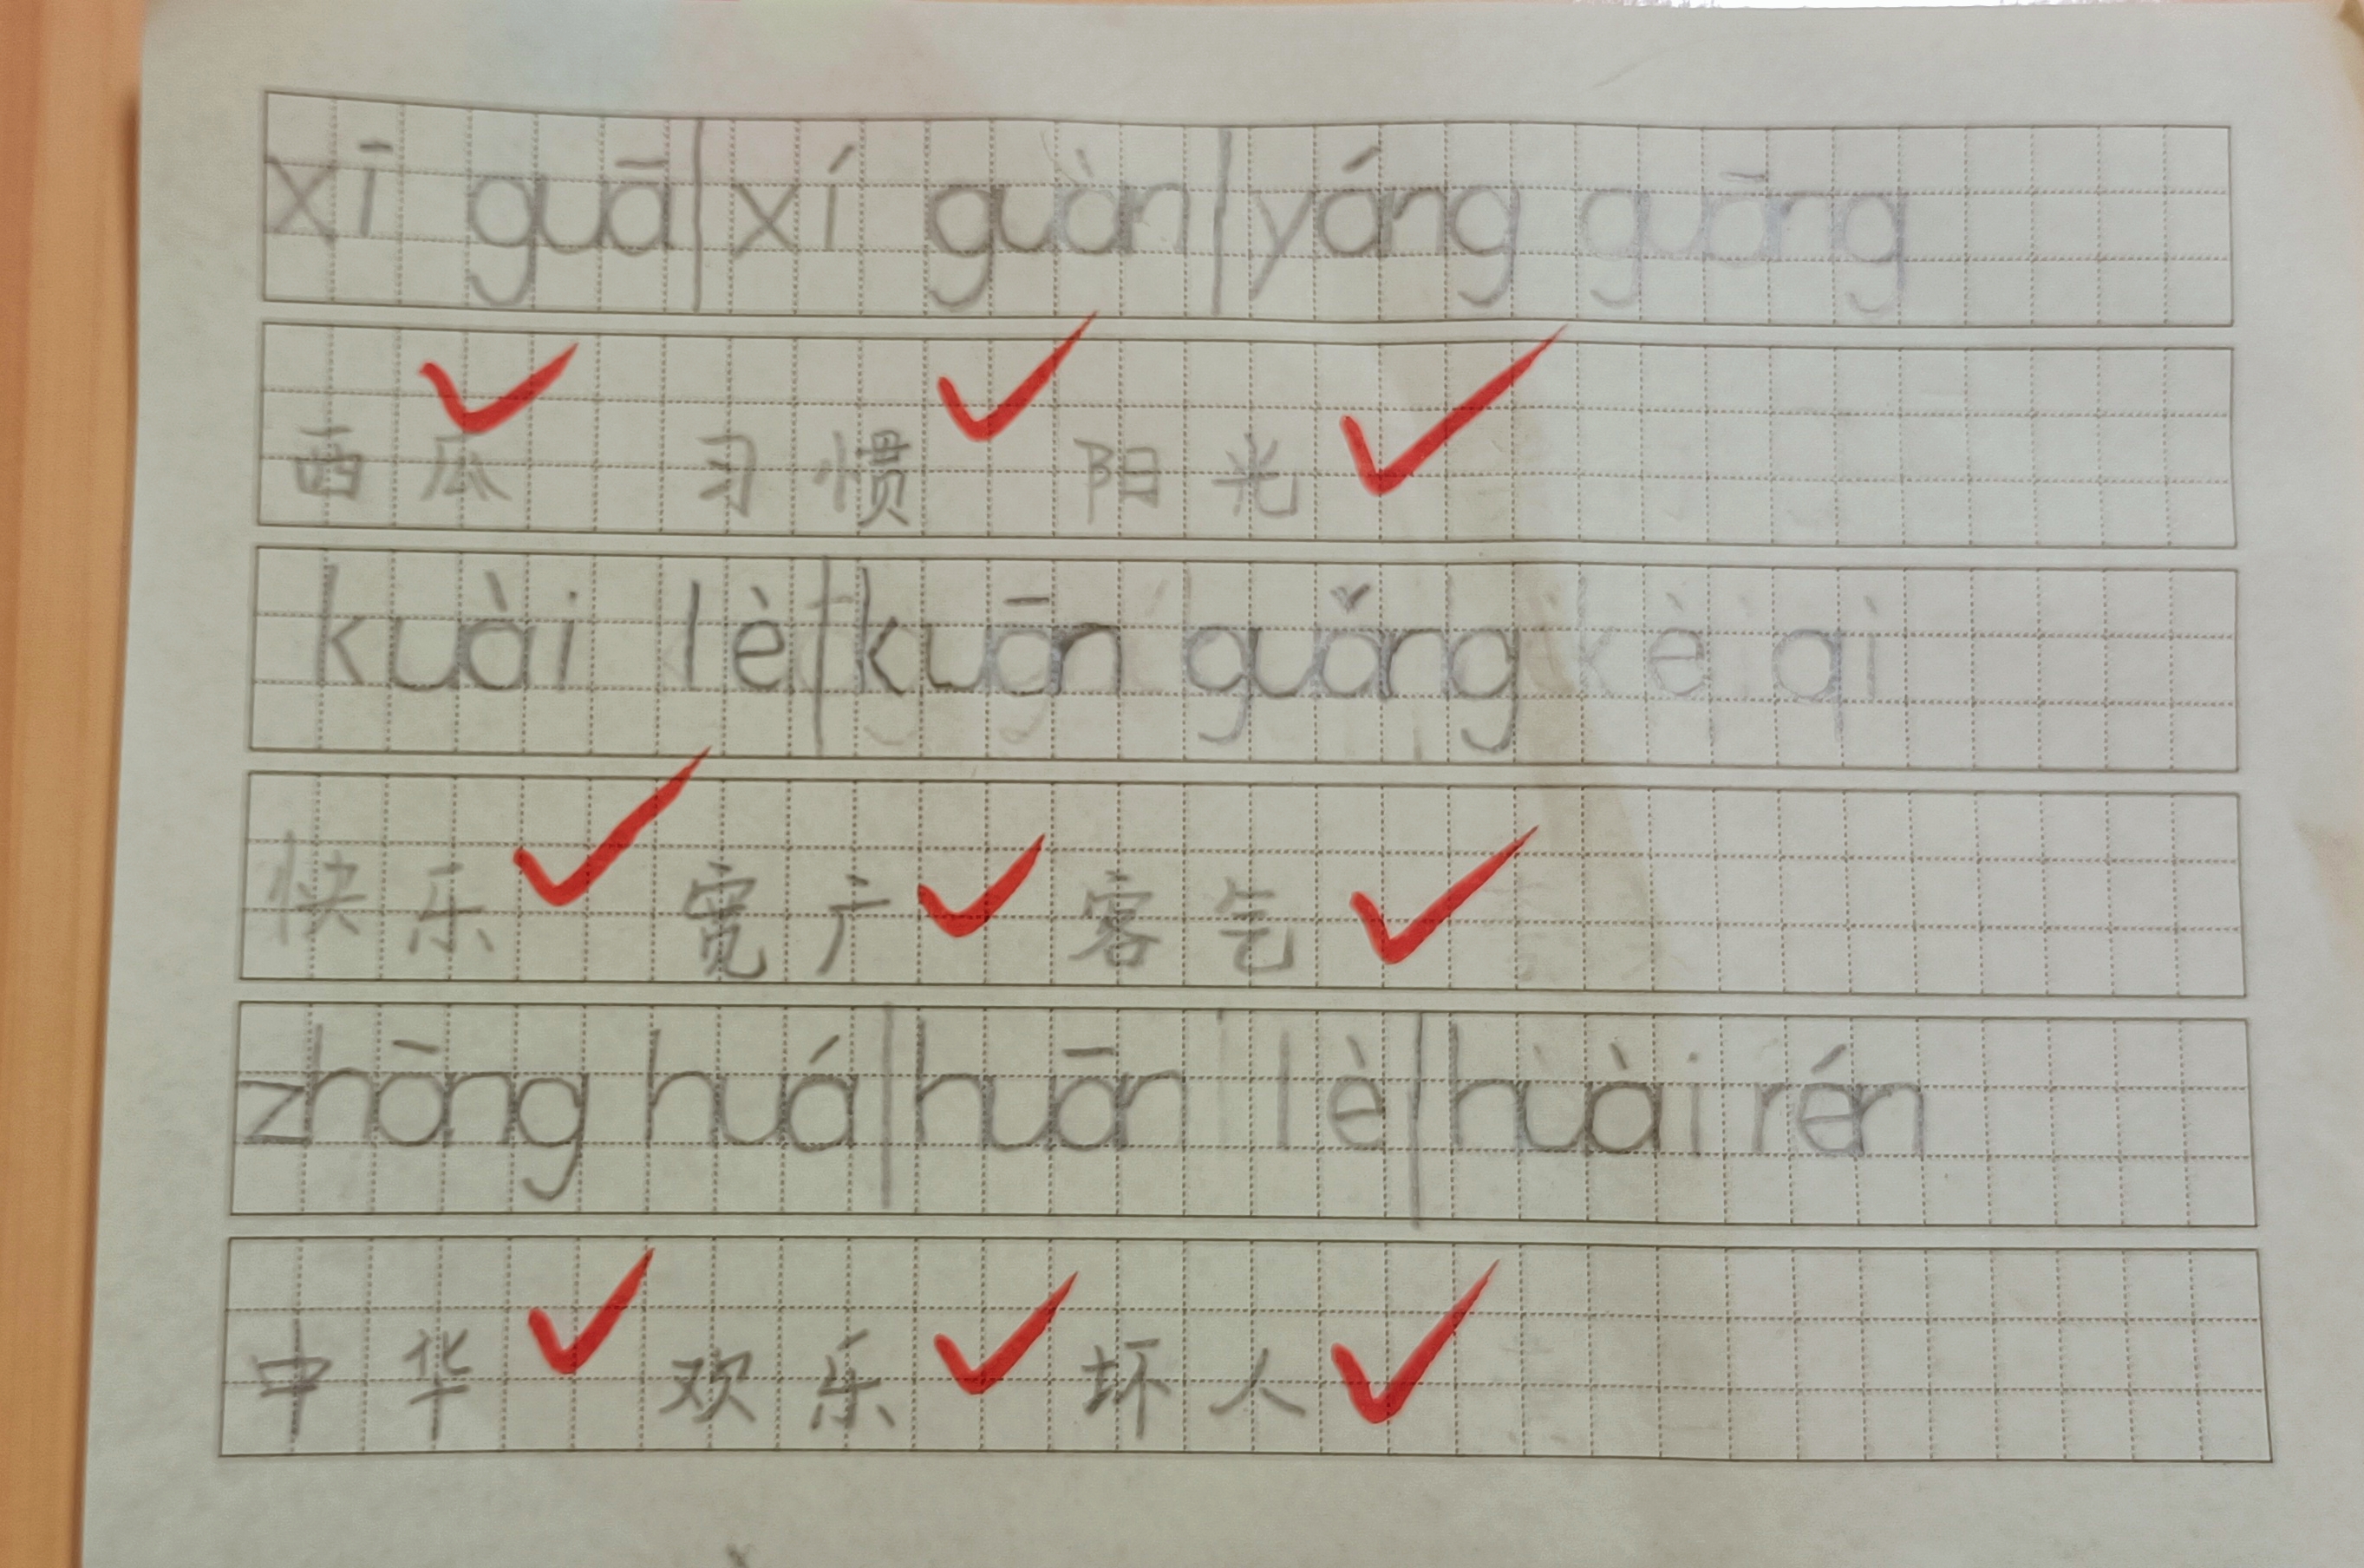 xī guā | xí guàn | yáng guāng
西瓜 习惯 阳光
kuài lè | kuān guǎng kè qi
快乐 宽广 客气
zhōng huá | huān lè | huài rén
中华 欢乐 坏人